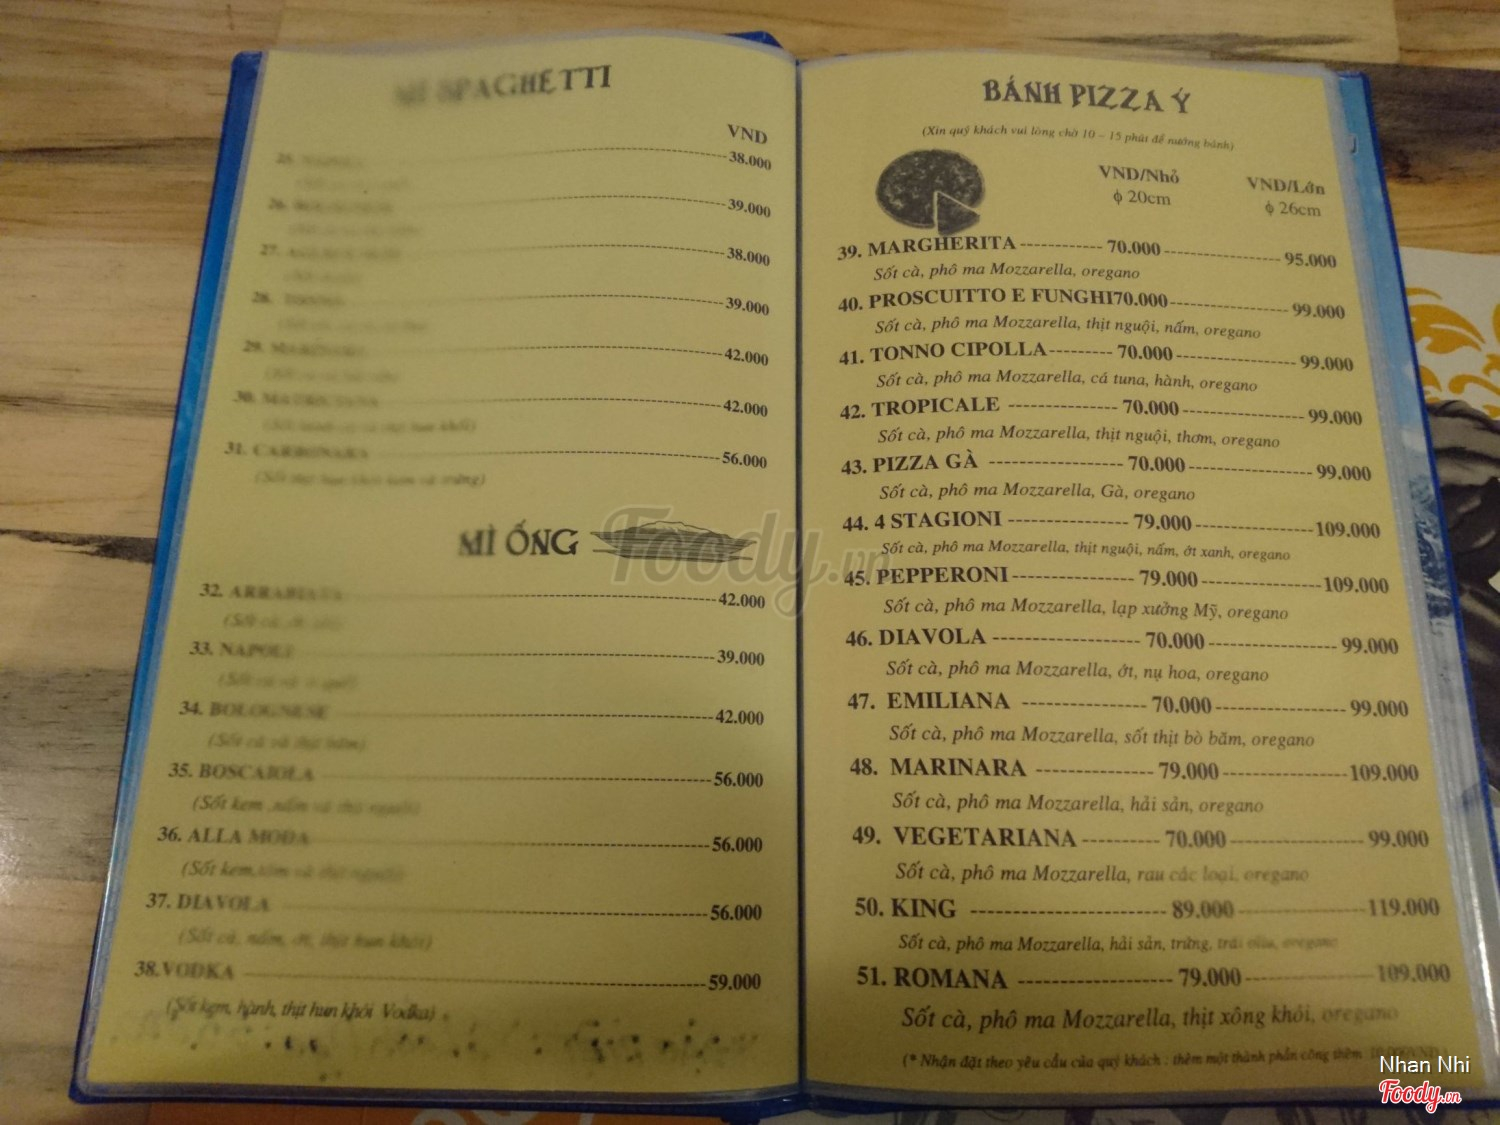 MÌ SPAGHETTI
VND
25. NAPOLI 38.000
26. BOLOGNESE 39.000
27. 38.000
28. TONNO 39.000
29. MARINARA 42.000
30. MATRICIANA 42.000
31. CARBONARA 56.000
MÌ ỐNG
32. ARRABIATA 42.000
33. NAPOLI 39.000
34. BOLOGNESE 42.000
(Sốt cà và thịt băm)
35. BOSCAIOLA 56.000
(Sốt kem, nấm và thịt nguội)
36. ALLA MODA 56.000
(Sốt kem, tôm và thịt nguội)
37. DIAVOLA 56.000
(Sốt cà, nấm, ớt, thịt hun khói)
38. VODKA 59.000
(Sốt kem, hành, thịt hun khói Vodka)
BÁNH PIZZA Ý
(Xin quý khách vui lòng chờ 10 – 15 phút để nướng bánh)
VND/Nhỏ VND/Lớn
ϕ 20cm ϕ 26cm
39. MARGHERITA 70.000 95.000
Sốt cà, phô ma Mozzarella, oregano
40. PROSCUITTO E FUNGHI 70.000 99.000
Sốt cà, phô ma Mozzarella, thịt nguội, nấm, oregano
41. TONNO CIPOLLA 70.000 99.000
Sốt cà, phô ma Mozzarella, cá tuna, hành, oregano
42. TROPICALE 70.000 99.000
Sốt cà, phô ma Mozzarella, thịt nguội, thơm, oregano
43. PIZZA GÀ 70.000 99.000
Sốt cà, phô ma Mozzarella, Gà, oregano
44. 4 STAGIONI 79.000 109.000
Sốt cà, phô ma Mozzarella, thịt nguội, nấm, ớt xanh, oregano
45. PEPPERONI 79.000 109.000
Sốt cà, phô ma Mozzarella, lạp xưởng Mỹ, oregano
46. DIAVOLA 70.000 99.000
Sốt cà, phô ma Mozzarella, ớt, nụ hoa, oregano
47. EMILIANA 70.000 99.000
Sốt cà, phô ma Mozzarella, sốt thịt bò băm, oregano
48. MARINARA 79.000 109.000
Sốt cà, phô ma Mozzarella, hải sản, oregano
49. VEGETARIANA 70.000 99.000
Sốt cà, phô ma Mozzarella, rau các loại, oregano
50. KING 89.000 119.000
Sốt cà, phô ma Mozzarella, hải sản, trứng, trái oliu, oregano
51. ROMANA 79.000 109.000
Sốt cà, phô ma Mozzarella, thịt xông khói, oregano
(* Nhận đặt theo yêu cầu của quý khách : thêm một thành phần cộng thêm
Foody.vn
Nhan Nhi
Foody.vn